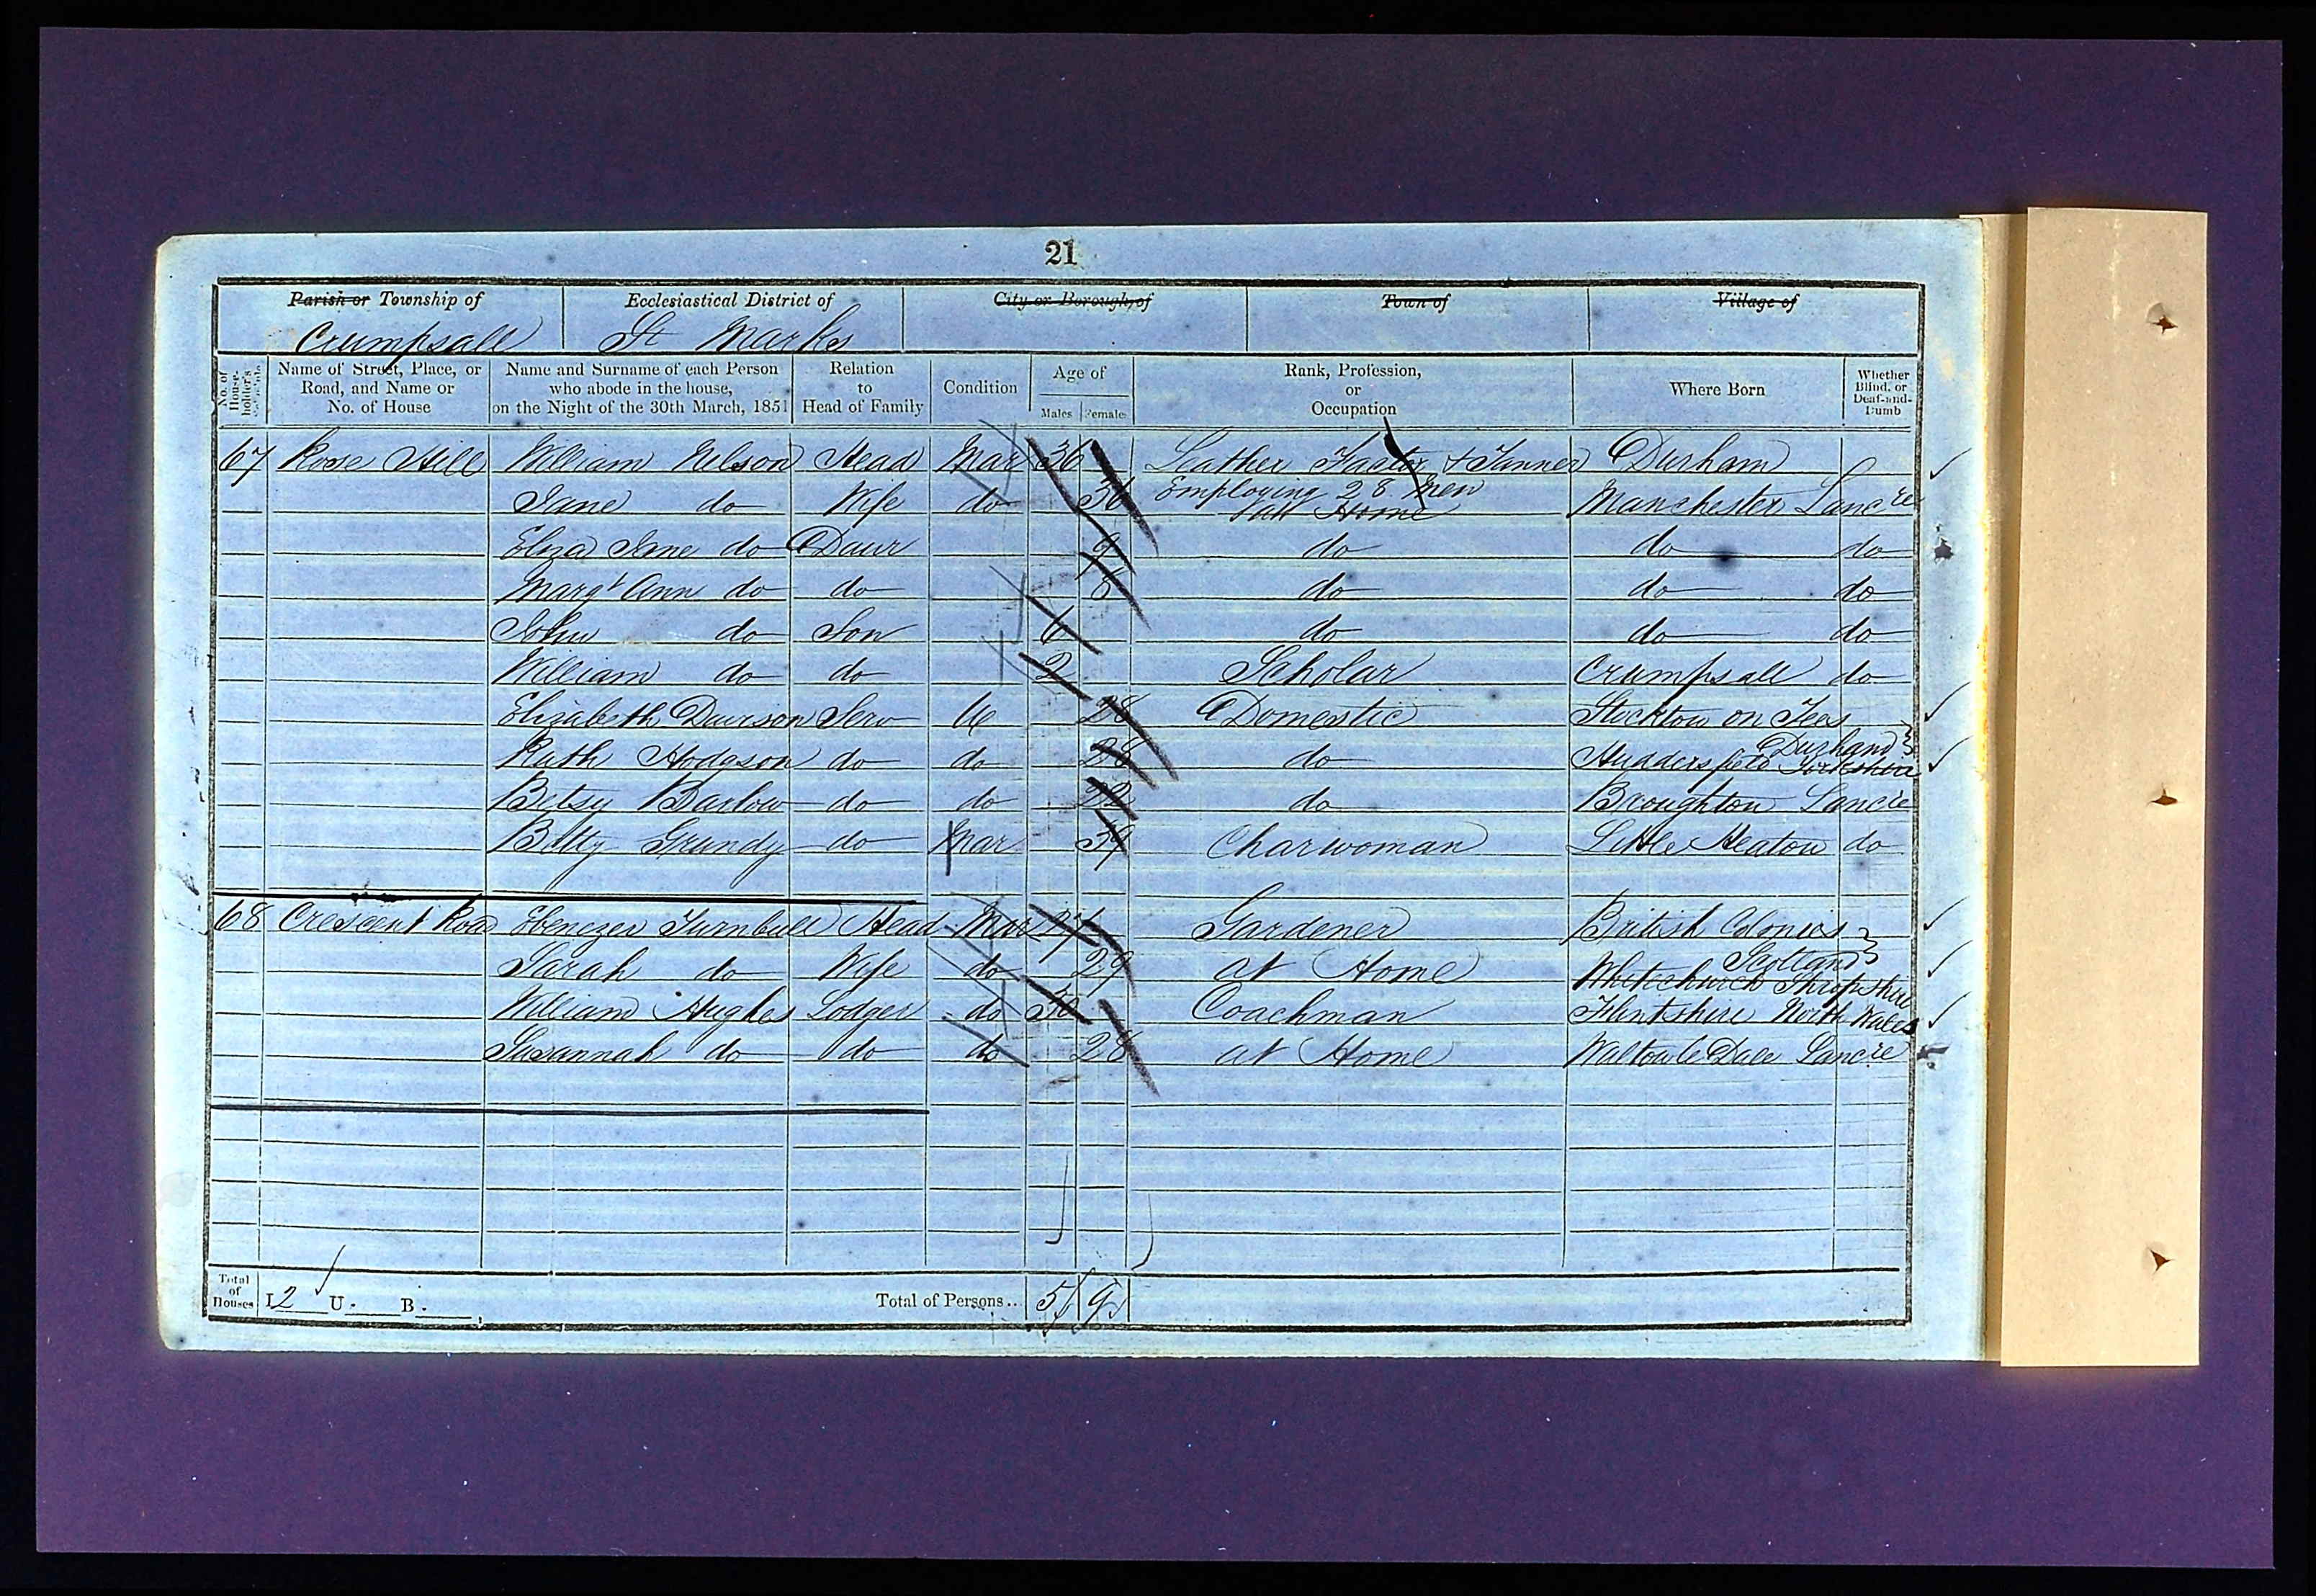 21
Parish or Township of Ecclesiastical District of City or Borough of Town of Village of
Crumpsall St Marks
No. of House-holder's Name of Street, Place, or Road, and Name or No. of House Name and Surname of each Person who abode in the house, on the Night of the 30th March, 1851 Relation to Head of Family Condition Age of Males Females Rank, Profession, or Occupation Where Born Whether Blind, or Deaf-and-Dumb
67 Rose Hill William Nelson Head Mar 36 Leather Factor & Tanner Durham
Employing 28 Men
Jane do Wife do 36 at Home Manchester Lancre
Eliza Jane do Daur 9 do do do
Margt Ann do do 8 do do do
John do Son 6 do do do
William do do 2 Scholar Crumpsall do
Elizabeth Dawson Serv U 28 Domestic Stockton on Tees
Durham
Ruth Hodgson do do 28 do Huddersfeld Yorkshire
Betsy Barlow do do 22 do Broughton Lancre
Betty Grundy do Mar 39 Charwoman Little Heaton do
68 Crescent Road Ebenezer Turnbull Head Mar Gardener British Colonies
Scotland
Sarah do Wife do 29 at Home Whitchurch Shropshire
William Hughes Lodger do 30 Coachman Flintshire North Wales
Susannah do do do 28 at Home Walton le Dale Lancre
Total of Houses I 2 U. B. Total of Persons... 5 9